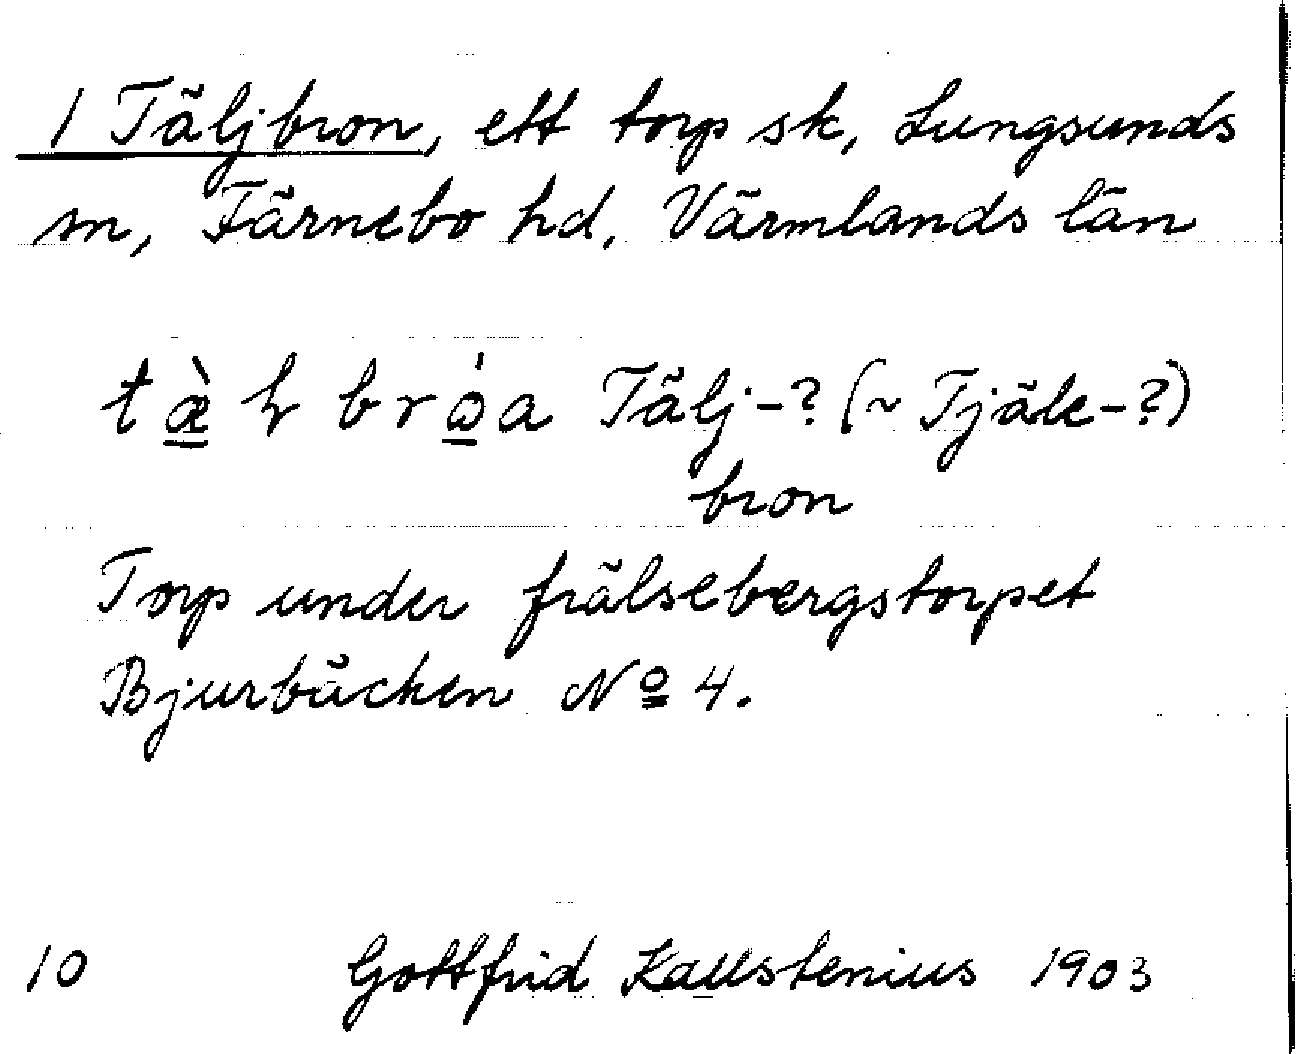 1 Täljbron, ett torp sk, Lungsunds
sn, Färnebo hd, Värmlands län
Tälj-? (~ Tjäle-?)
bron
Torp under frälsebergstorpet
Bjurbäcken Nº 4.
10 Gottfrid Kallstenius 1903